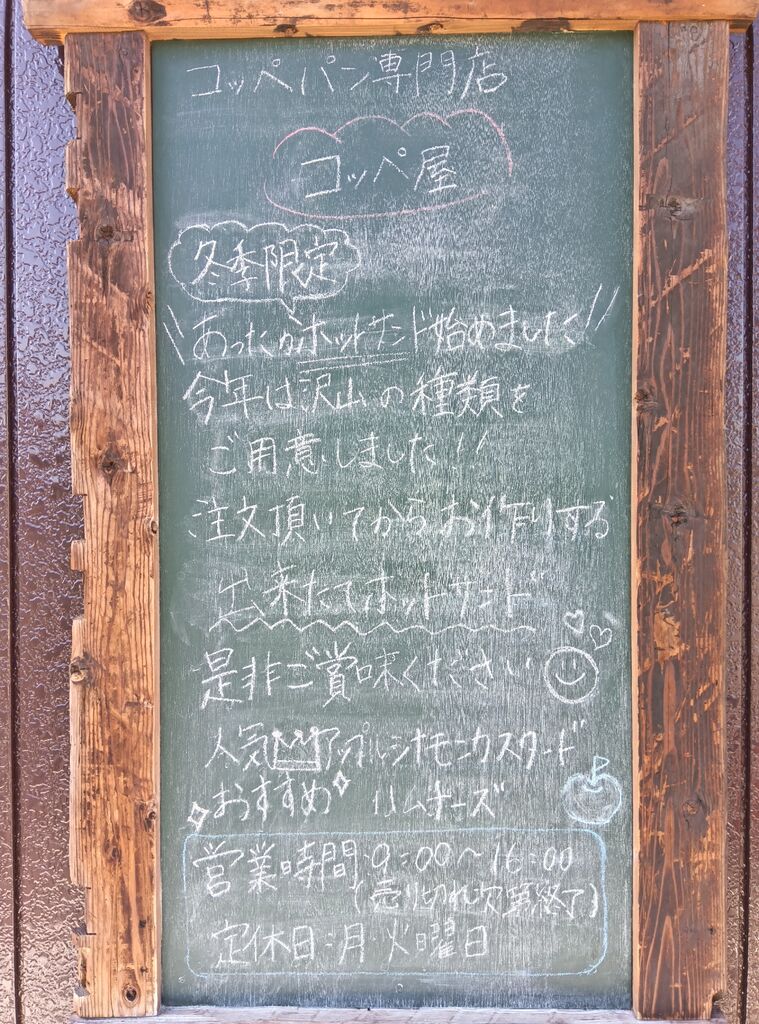 コッペパン専門店
コッペ屋
冬季限定
\\あったかホットサンド始めました//
今年は沢山の種類を
ご用意しました!!
注文頂いてからお作りする
出来たてホットサンド
是非ご賞味ください
人気 アップルシナモンカスタード
おすすめ ハムチーズ
営業時間:9:00～16:00
(売り切れ次第終了)
定休日:月・火曜日